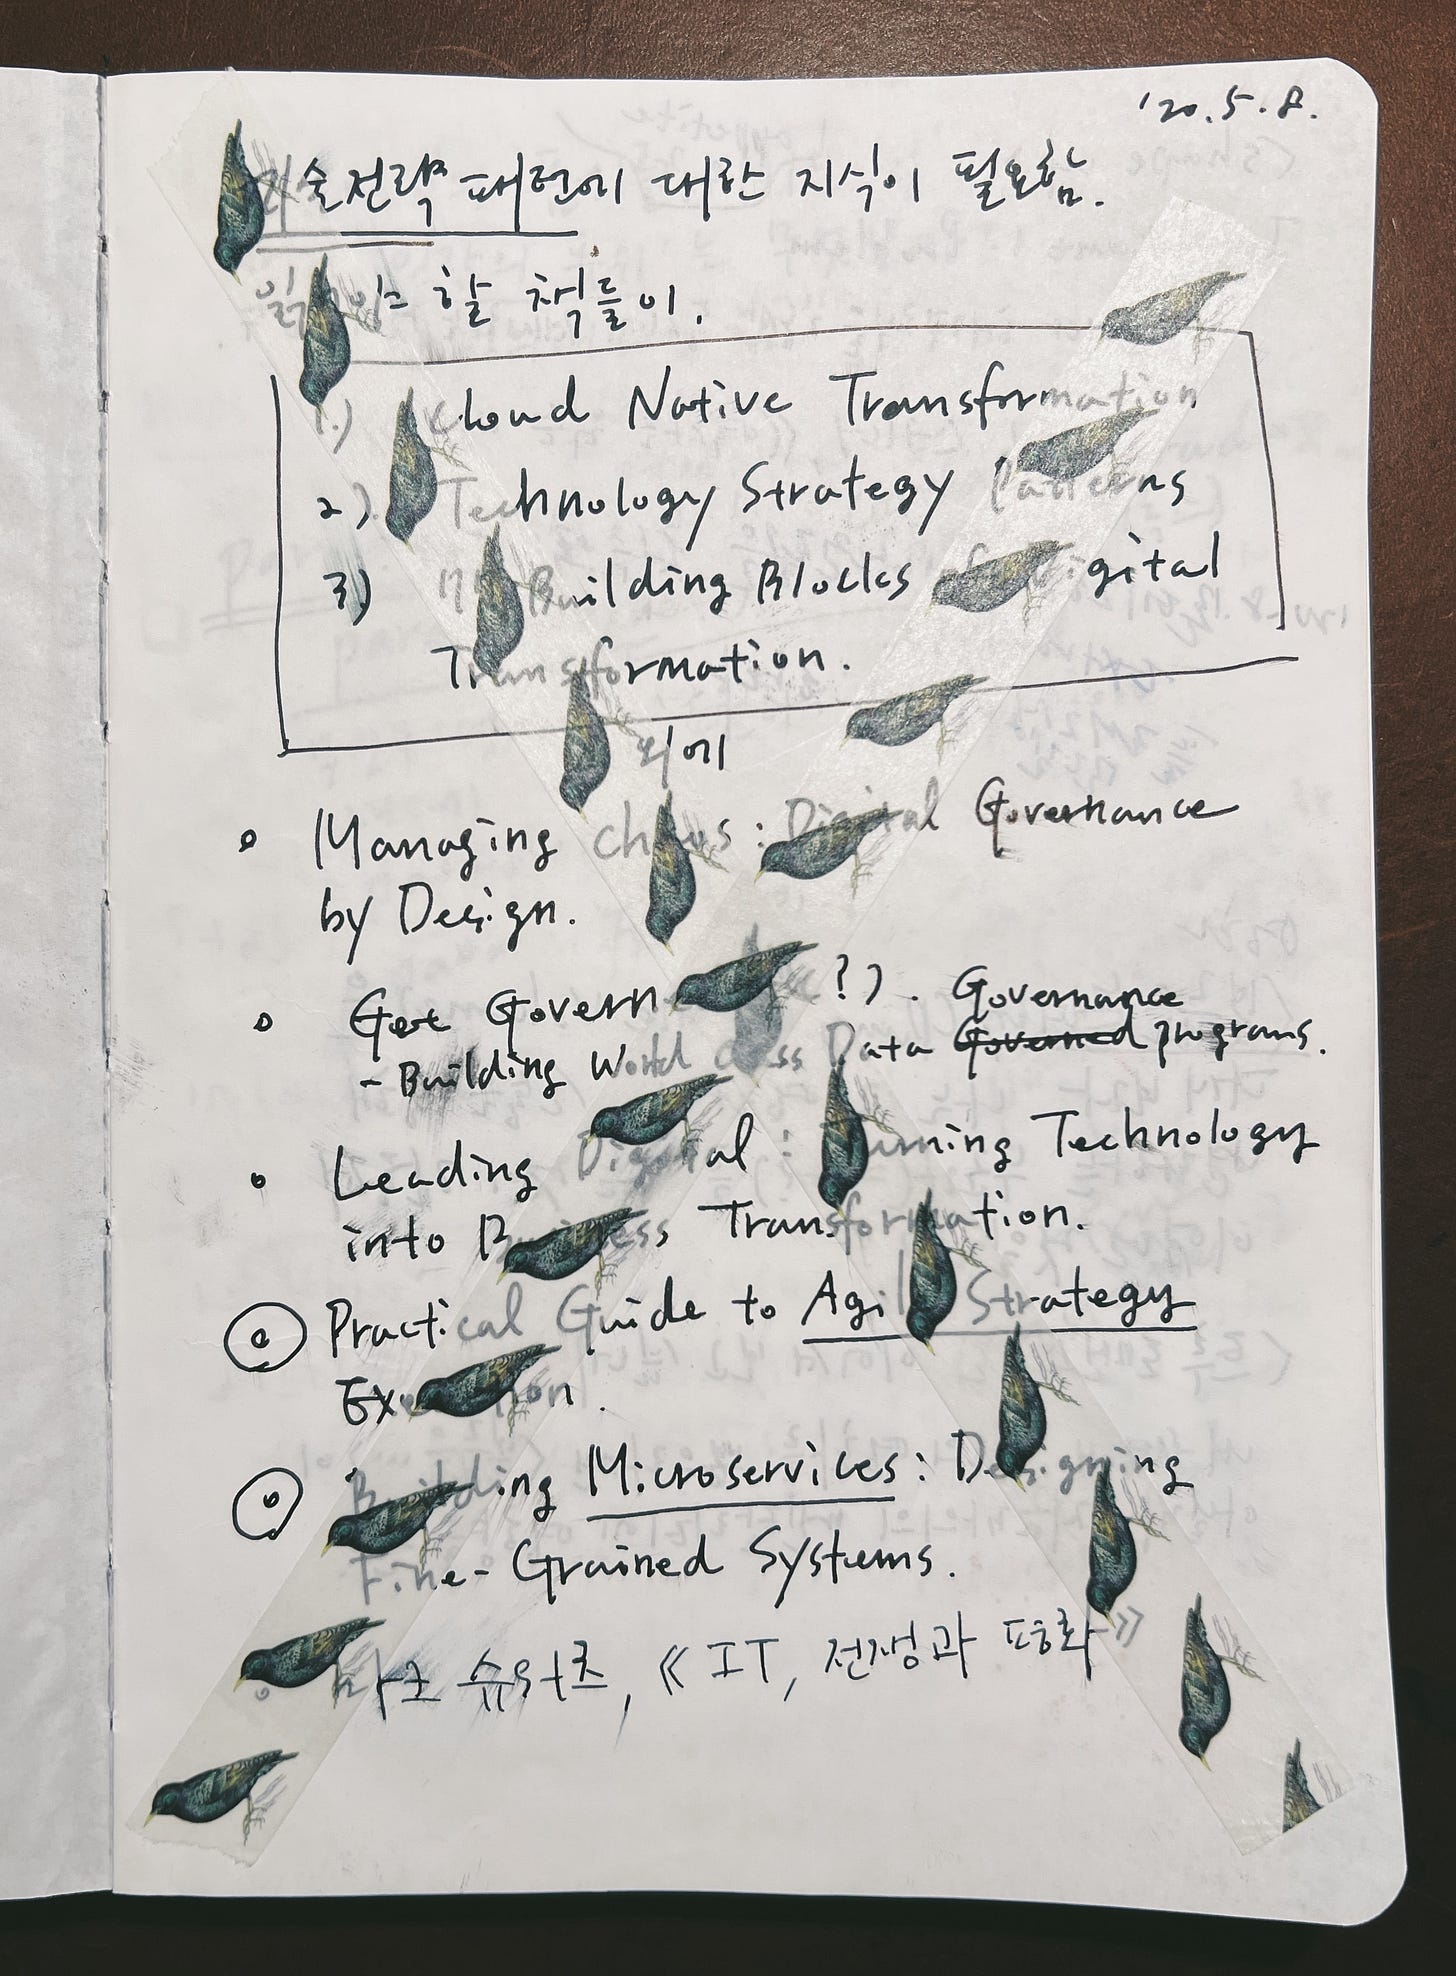 '20.5.8.
기술전략 패턴에 대한 지식이 필요함.
읽어야 할 책들이,
1.) Cloud Native Transformation
2.) Technology Strategy Patterns
3.) Building Blocks of Digital
Transformation.
외에
Managing Chaos : Digital Governance
by Design.
Get Govern ?). Governance
- Building World Class Data Governed programs.
Leading Digital : Turning Technology
into Business Transformation.
Practical Guide to Agile Strategy
Execution.
Building Microservices : Designing
Fine-Grained Systems.
마크 슈워츠, 《IT, 전쟁과 평화》